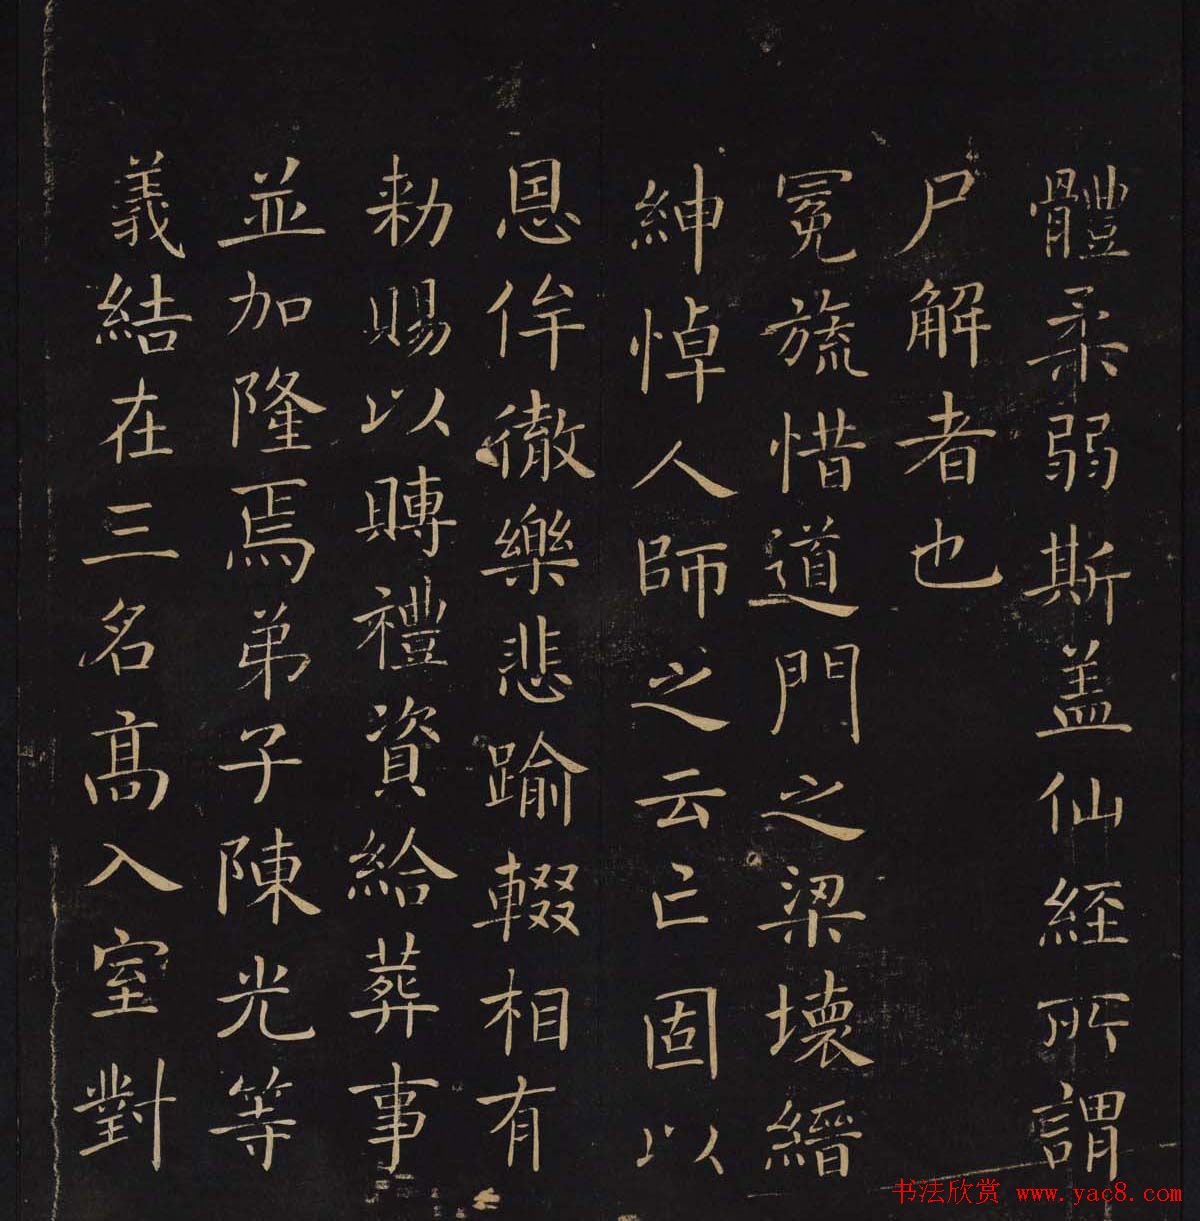 體柔弱斯盖仙經所謂
尸解者也
冕旒惜道門之梁壞縉
紳悼人師之云亡固以
恩侔徹樂悲踰輟相有
勑賜以賻禮資給葬事
並加隆焉弟子陳光等
義結在三名高入室對
书法欣赏 www.yac8.com